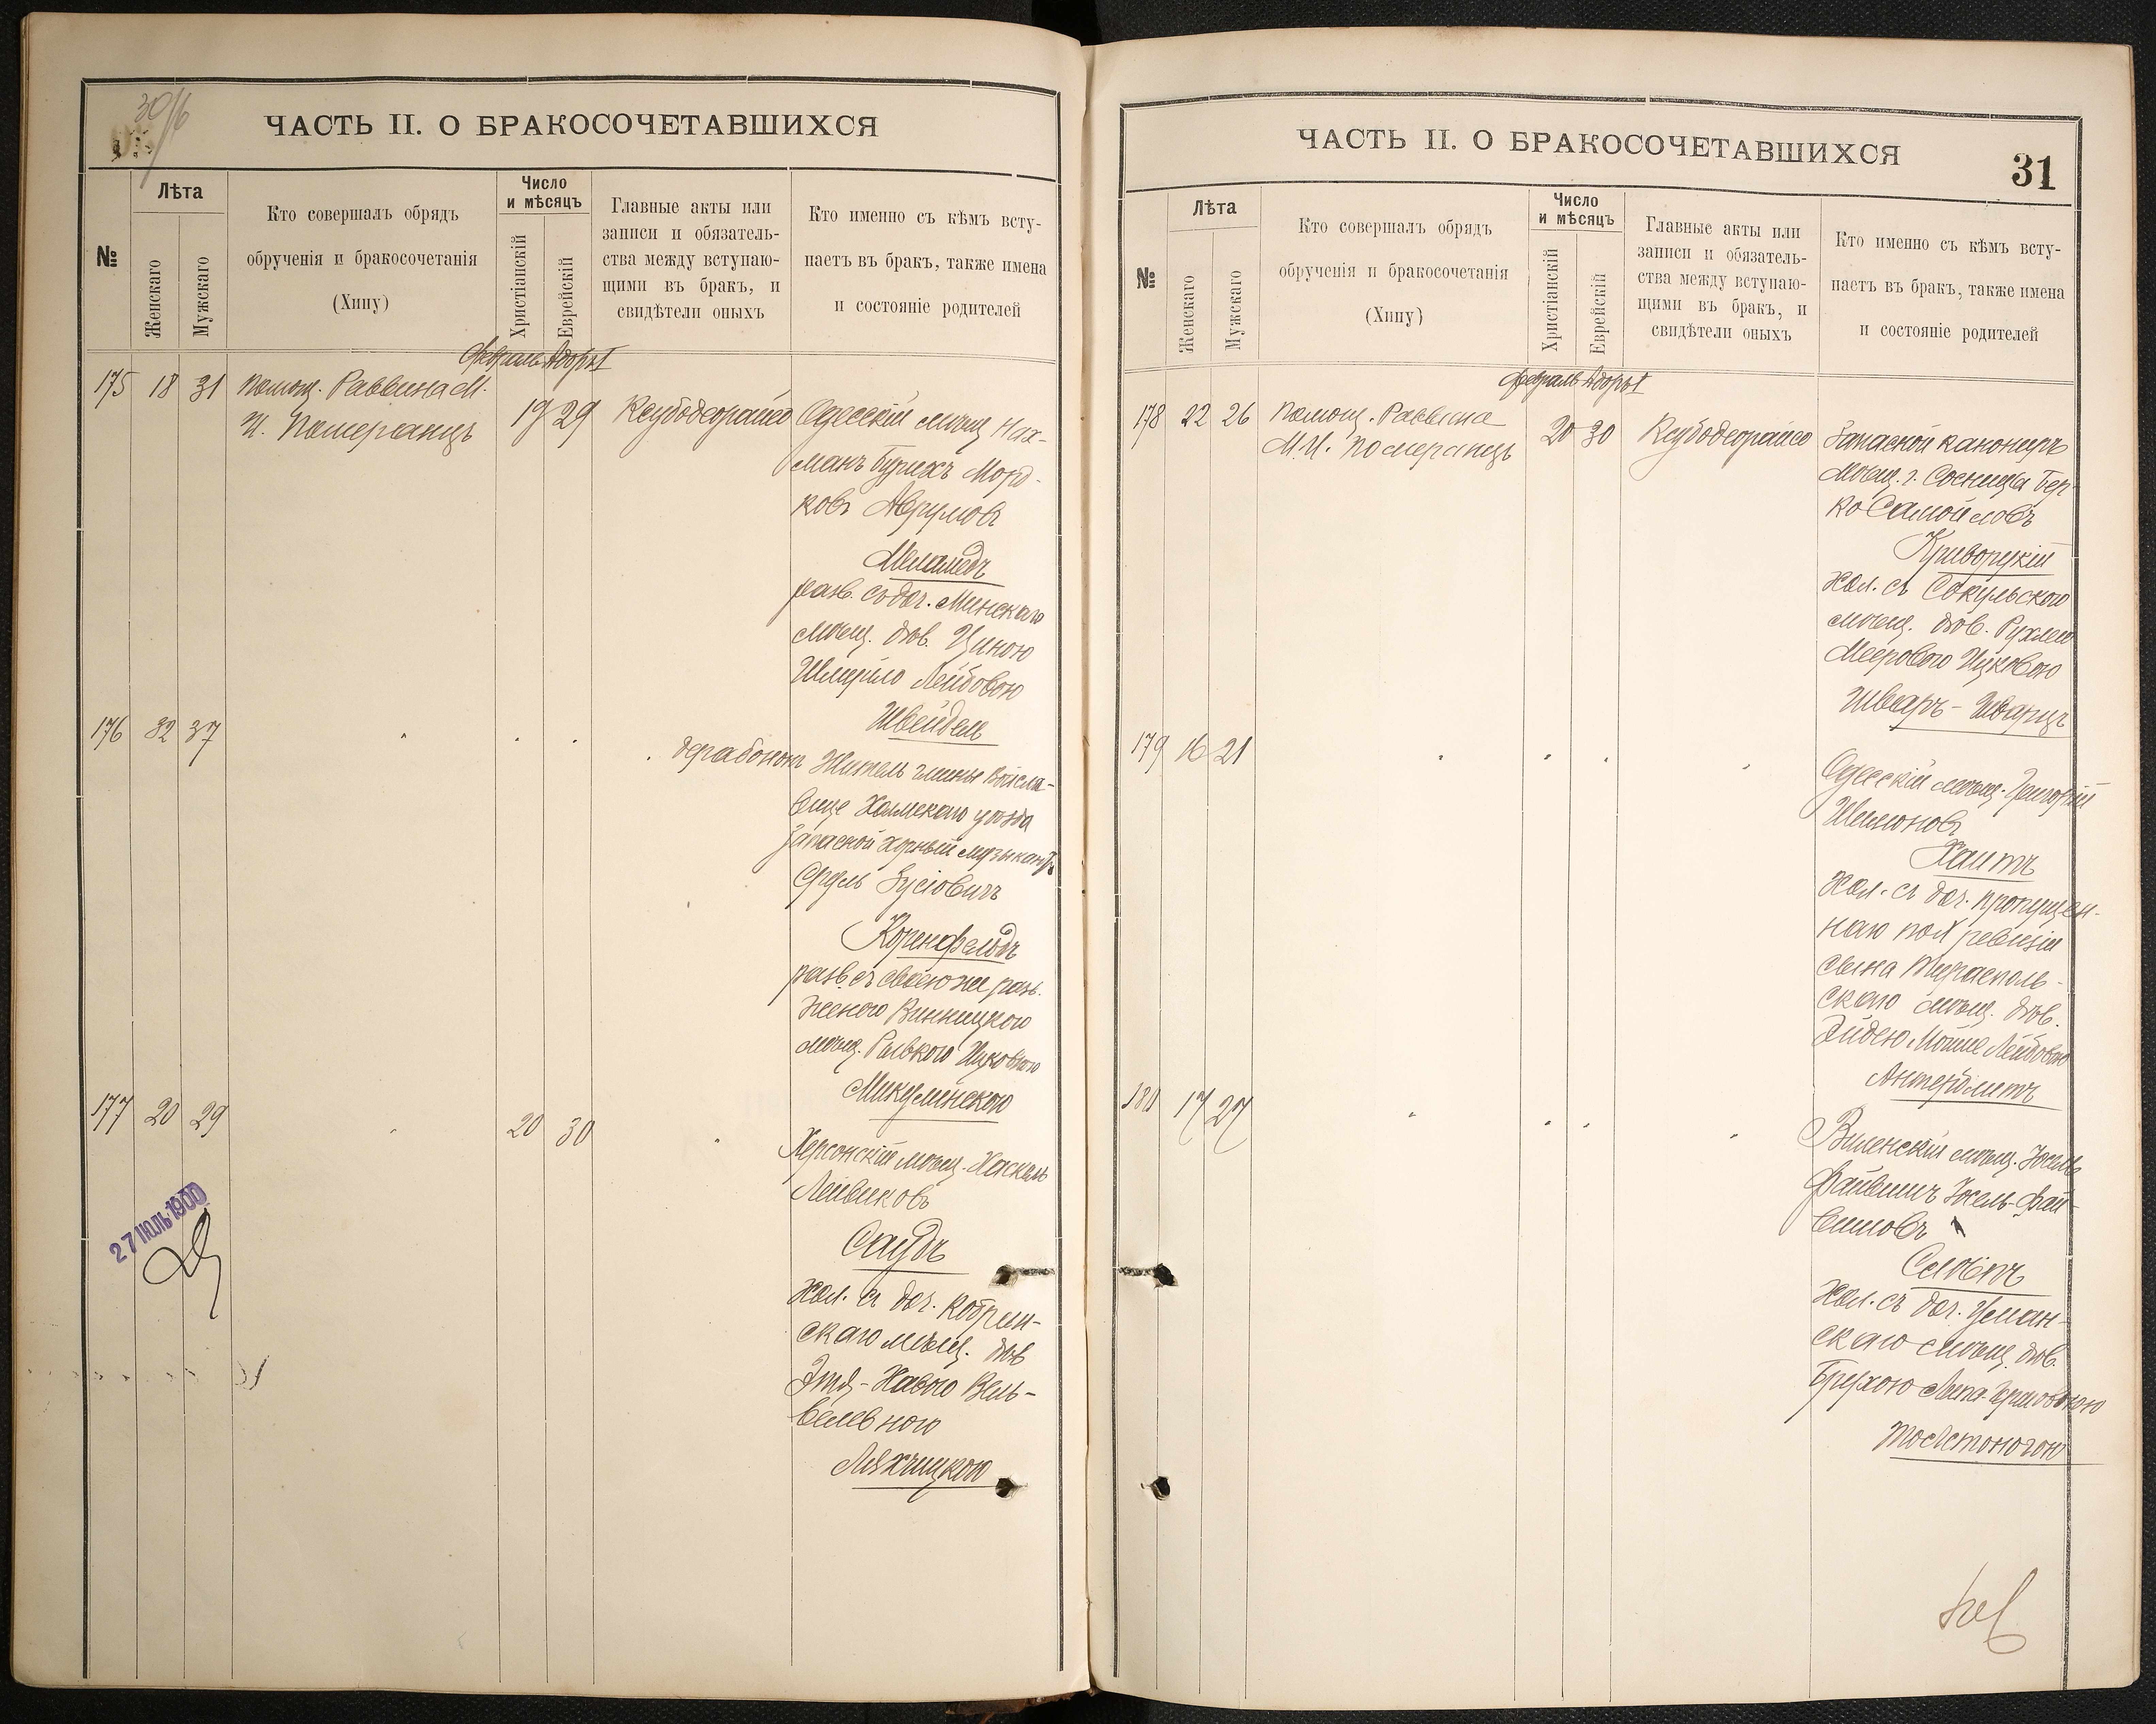 30/6
ЧАСТЬ II. О БРАКОСОЧЕТАВШИХСЯ
№
Лѣта
Женскаго
Мужскаго
Кто совершалъ обрядъ
обрученія и бракосочетанія
(Хипу)
Число
и мѣсяцъ
Христіанскій
Еврейскій
Главные акты или
записи и обязатель-
ства между вступаю-
щими въ бракъ, и
свидѣтели оныхъ
Кто именно съ кѣмъ всту-
паетъ въ бракъ, также имена
и состояніе родителей
Февраль Адоръ I
175 18 31 Помощ. Раввина М.
И. Померанцъ 19 29 Ксубодеорайсо Одесскій мѣщ. Нах-
манъ Бурихъ Морд-
ковъ Аврумовъ
Меламедъ
разв. съ доч. Минскаго
мѣщ. дѣв. Циною
Шмуйло Лейбовою
Швейдель
176 32 37 дерабононъ Житель гмины Войсла-
вице Холмскаго уѣзда
запасной хорный музыкантъ
Сруль Зусіовичъ
Коренфельдъ
разв. съ своею же разв.
женою Винницкою
мѣщ. Рывкою Ицковною
Микулинскою
177 20 29 20 30
Херсонскій мѣщ. Хаскель
Лейвиковъ
Саудъ
хол. съ доч. Кобрин-
скаго мѣщ. дѣв
Этя-Хавою Вель-
велевною
Ляхчицкою
27 ІЮЛЬ 1900
ЧАСТЬ II. О БРАКОСОЧЕТАВШИХСЯ
31
№
Лѣта
Женскаго
Мужскаго
Кто совершалъ обрядъ
обрученія и бракосочетанія
(Хипу)
Число
и мѣсяцъ
Христіанскій
Еврейскій
Главные акты или
записи и обязатель-
ства между вступаю-
щими въ бракъ, и
свидѣтели оныхъ
Кто именно съ кѣмъ всту-
паетъ въ бракъ, также имена
и состояніе родителей
Февраль Адоръ I
178 22 26 Помощ. Раввина
М.И. Померанцъ 20 30 Ксубодеорайсо Запасной канониръ
мѣщ. г. Сосницы Бер-
ко Самойловъ
Криворукій
хол. съ Сокульскою
мѣщ. дѣв. Рухлею
Мееровою Ицковою
Шваръ-Шварцъ
179 16 21
Одесскій мѣщ. Григорій
Шимоновъ
Хаитъ
хол. съ доч. пропущен-
наго по X ревизіи
сына Тирасполь-
скаго мѣщ. дѣв.
Эйдею Мошле Лейбовою
180 17 27
Виленскій мѣщ. Іосель
Файвишъ Іосель-Фай-
вишовъ
хол. съ доч. Уман-
скаго мѣщ. дѣв.
Брухою
Толстоногою